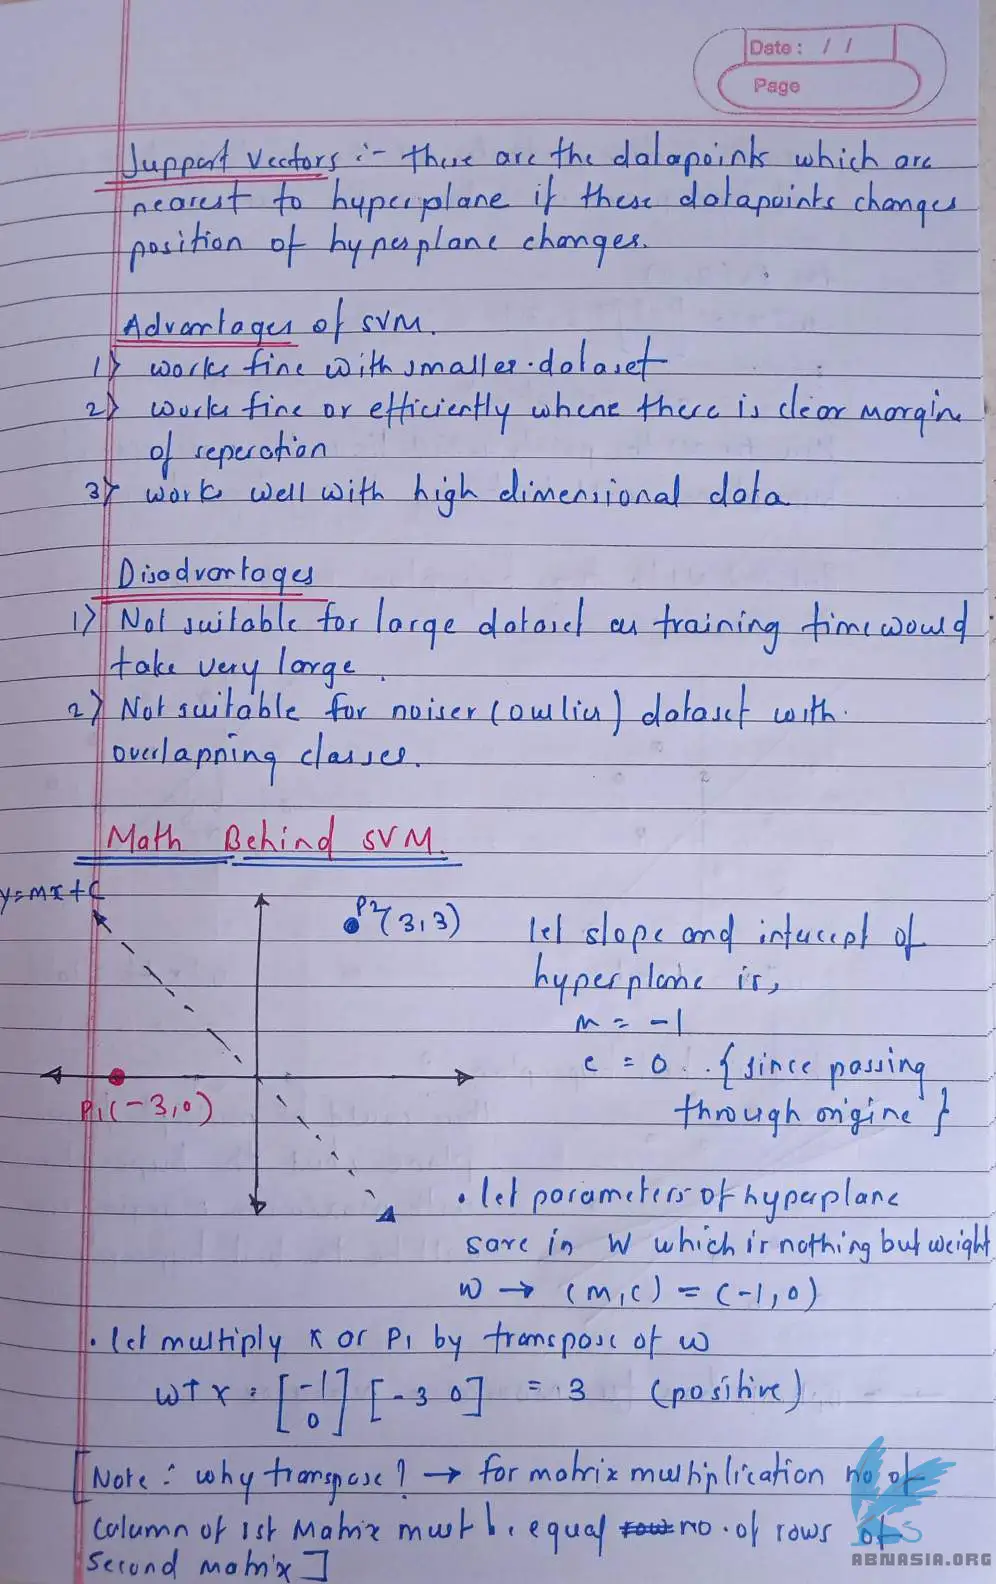 Date : / /
Page
Support Vectors :- these are the datapoints which are
nearest to hyperplane if these datapoints changes
position of hyperplane changes.
Advantages of SVM.
1) works fine with smaller dataset
2) works fine or efficiently where there is clear margin
of seperation
3) work well with high dimensional data
Disadvantages
1) Not suitable for large dataset as training time would
take very large.
2) Not suitable for noiser (outlier) dataset with
overlapping classes.
Math Behind SVM.
y=mx+c
P2(3,3)
let slope and intercept of
hyperplane is,
m = -1
c = 0 . . { since passing
through origine }
P1(-3,0)
• let parameters of hyperplane
save in W which is nothing but weight
w → (m,c) = (-1,0)
• let multiply x or P1 by transpose of w
wT x = [-1 0] [-3 0] = 3 (positive)
[Note : why transpose? → for matrix multiplication no of
column of 1st Matrix must be equal no. of rows of
second matrix]
ABNASIA.ORG